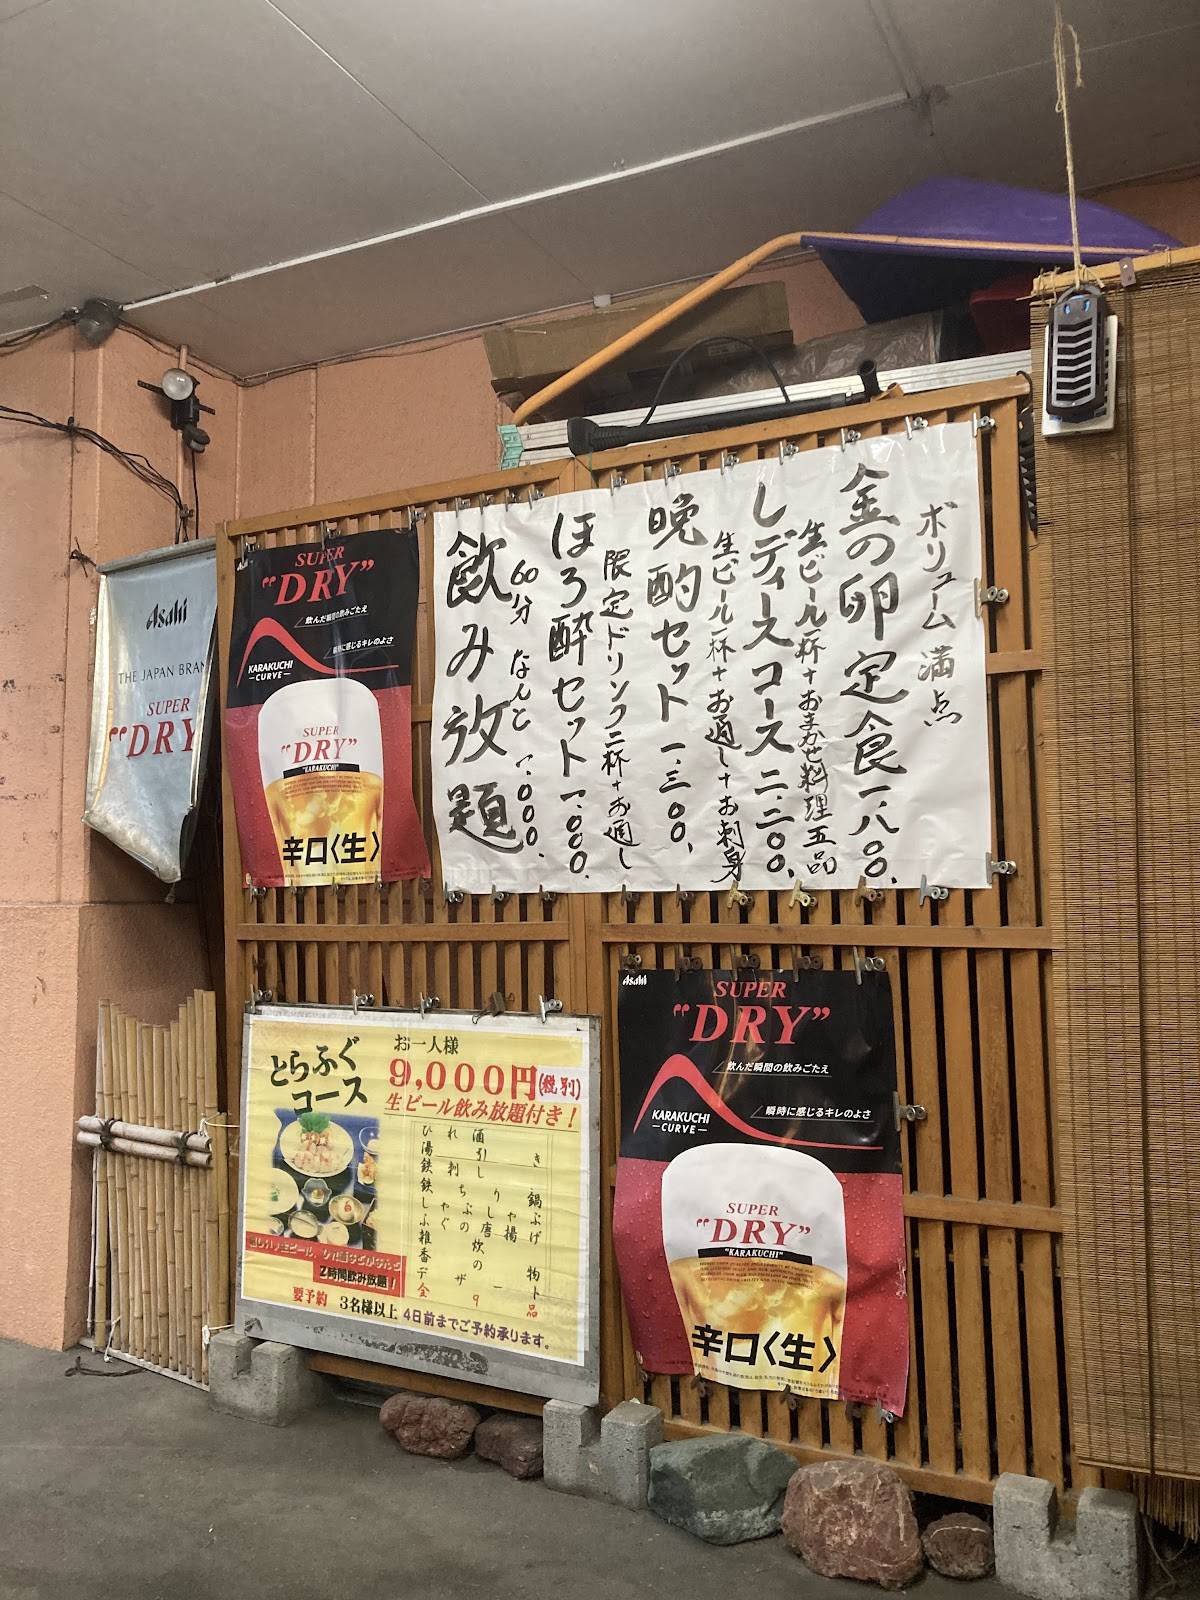 ボリューム満点
金の卵定食 一、八〇〇、
生ビール一杯+おまかせ料理五品
レディースコース 二、二〇〇、
生ビール一杯+お通し+お刺身
晩酌セット 一、三〇〇、
限定ドリンク二杯+お通し
ほろ酔セット 一、〇〇〇、
60分 なんと 一、〇〇〇、
飲み放題
Asahi
THE JAPAN BRAN
SUPER
"DRY
SUPER
"DRY"
飲んだ瞬間の飲みごたえ
瞬時に感じるキレのよさ
KARAKUCHI
CURVE
SUPER
"DRY"
"KARAKUCHI"
辛口〈生〉
とらふぐ
コース
お一人様
9,000円(税別)
生ビール飲み放題付き!
ひれ酒
湯引き
鉄刺し
鉄ちり鍋
しゃぶしゃぶ
ふぐ唐揚げ
雑炊
香の物
デザート
全9品
2時間飲み放題!
要予約 3名様以上 4日前までご予約承ります。
Asahi
SUPER
"DRY"
飲んだ瞬間の飲みごたえ
瞬時に感じるキレのよさ
KARAKUCHI
CURVE
SUPER
"DRY"
"KARAKUCHI"
辛口〈生〉